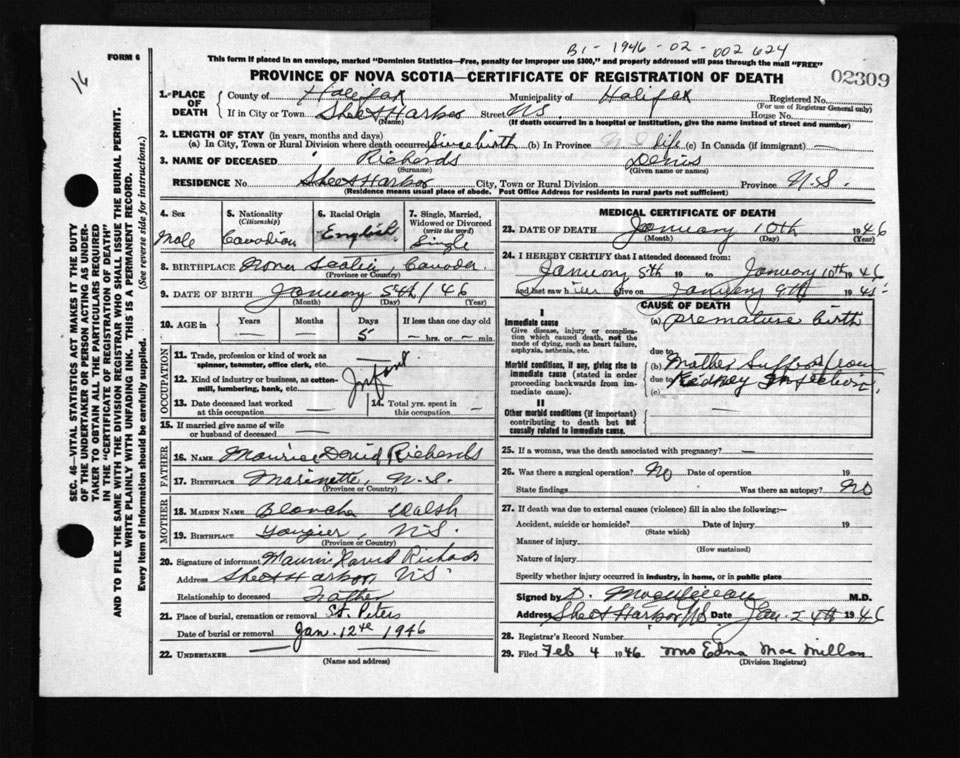 B1 - 1946 - 02 - 002624
16
FORM 6
This form if placed in an envelope, marked "Dominion Statistics—Free, penalty for improper use $300," and properly addressed will pass through the mail "FREE"
PROVINCE OF NOVA SCOTIA—CERTIFICATE OF REGISTRATION OF DEATH
02309
SEC. 46—VITAL STATISTICS ACT MAKES IT THE DUTY
OF THE UNDERTAKER OR PERSON ACTING AS UNDER-
TAKER TO OBTAIN ALL THE PARTICULARS REQUIRED
IN THE "CERTIFICATE OF REGISTRATION OF DEATH"
AND TO FILE THE SAME WITH THE DIVISION REGISTRAR WHO SHALL ISSUE THE BURIAL PERMIT.
WRITE PLAINLY WITH UNFADING INK. THIS IS A PERMANENT RECORD.
Every item of Information should be carefully supplied. (See reverse side for instructions.)
1. PLACE OF DEATH
County of Halifax Municipality of Halifax Registered No.
(For use of Registrar General only)
If in City or Town Sheet Harbor Street N.S. House No.
(Name) (If death occurred in a hospital or institution, give the name instead of street and number)
2. LENGTH OF STAY (in years, months and days)
(a) In City, Town or Rural Division where death occurred Since birth (b) In Province life (c) In Canada (if immigrant) —
3. NAME OF DECEASED Richards Denis
(Surname) (Given name or names)
RESIDENCE No. Sheet Harbor City, Town or Rural Division Province N.S.
(Residence means usual place of abode. Post Office Address for residents in rural parts not sufficient)
4. Sex
Male
5. Nationality
(Citizenship)
Canadian
6. Racial Origin
English
7. Single, Married, Widowed or Divorced
(write the word)
Single
8. BIRTHPLACE Nova Scotia, Canada
(Province or Country)
9. DATE OF BIRTH January 5th / 46
(Month) (Day) (Year)
10. AGE in Years Months Days If less than one day old
— — 5 — hrs. or — min.
OCCUPATION
11. Trade, profession or kind of work as spinner, teamster, office clerk, etc. —
12. Kind of industry or business, as cotton-mill, lumbering, bank, etc. Infant
13. Date deceased last worked at this occupation —
14. Total yrs. spent in this occupation —
15. If married give name of wife or husband of deceased —
FATHER
16. NAME Maurice David Richards
17. BIRTHPLACE Marinette, N.S.
(Province or Country)
MOTHER
18. MAIDEN NAME Blanche Walsh
19. BIRTHPLACE Tangier N.S.
(Province or Country)
20. Signature of informant Maurice David Richards
Address Sheet Harbor N.S.
Relationship to deceased Father
21. Place of burial, cremation or removal St. Peters
Date of burial or removal Jan. 12th 1946
22. UNDERTAKER
(Name and address)
MEDICAL CERTIFICATE OF DEATH
23. DATE OF DEATH January 10th 1946
(Month) (Day)
24. I HEREBY CERTIFY that I attended deceased from:
January 5th 19 to January 10th 1946
and last saw alive on January 9th 1945
CAUSE OF DEATH
I
Immediate cause
Give disease, injury or complication which caused death, not the mode of dying, such as heart failure, asphyxia, asthenia, etc.
(a) premature birth
due to
Morbid conditions, if any, giving rise to immediate cause (stated in order proceeding backwards from immediate cause).
(b) Mother Suffered from
due to Kidney Infection
(c)
II
Other morbid conditions (if important) contributing to death but not causally related to immediate cause.
25. If a woman, was the death associated with pregnancy? —
26. Was there a surgical operation? No Date of operation 19
State findings Was there an autopsy? No
27. If death was due to external causes (violence) fill in also the following:—
Accident, suicide or homicide? Date of injury 19
(State which)
Manner of injury
(How sustained)
Nature of injury
Specify whether injury occurred in industry, in home, or in public place
Signed by D. M.D.
Address Sheet Harbor N.S. Date Jan. 24th 1946
28. Registrar's Record Number
29. Filed Feb 4 1946 Mrs Edna MacMillan
(Division Registrar)